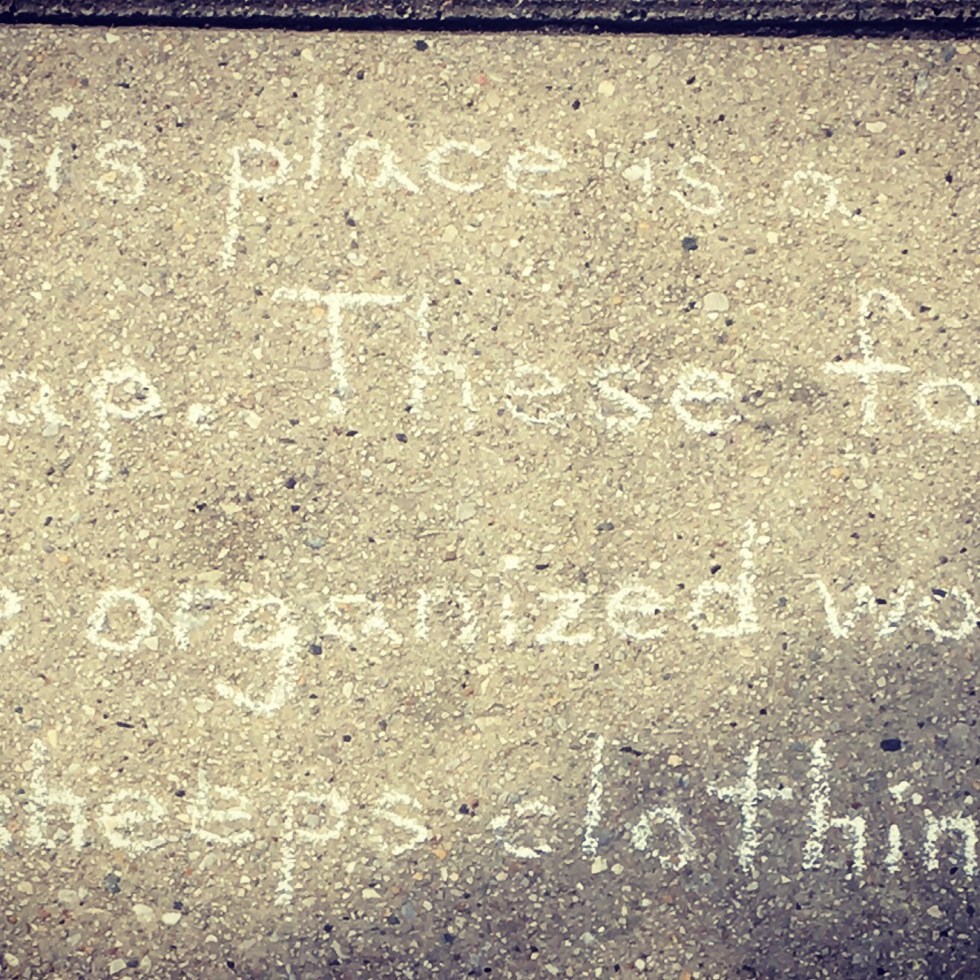 his place is a
ap. These fo
organized wo
sheeps clothin